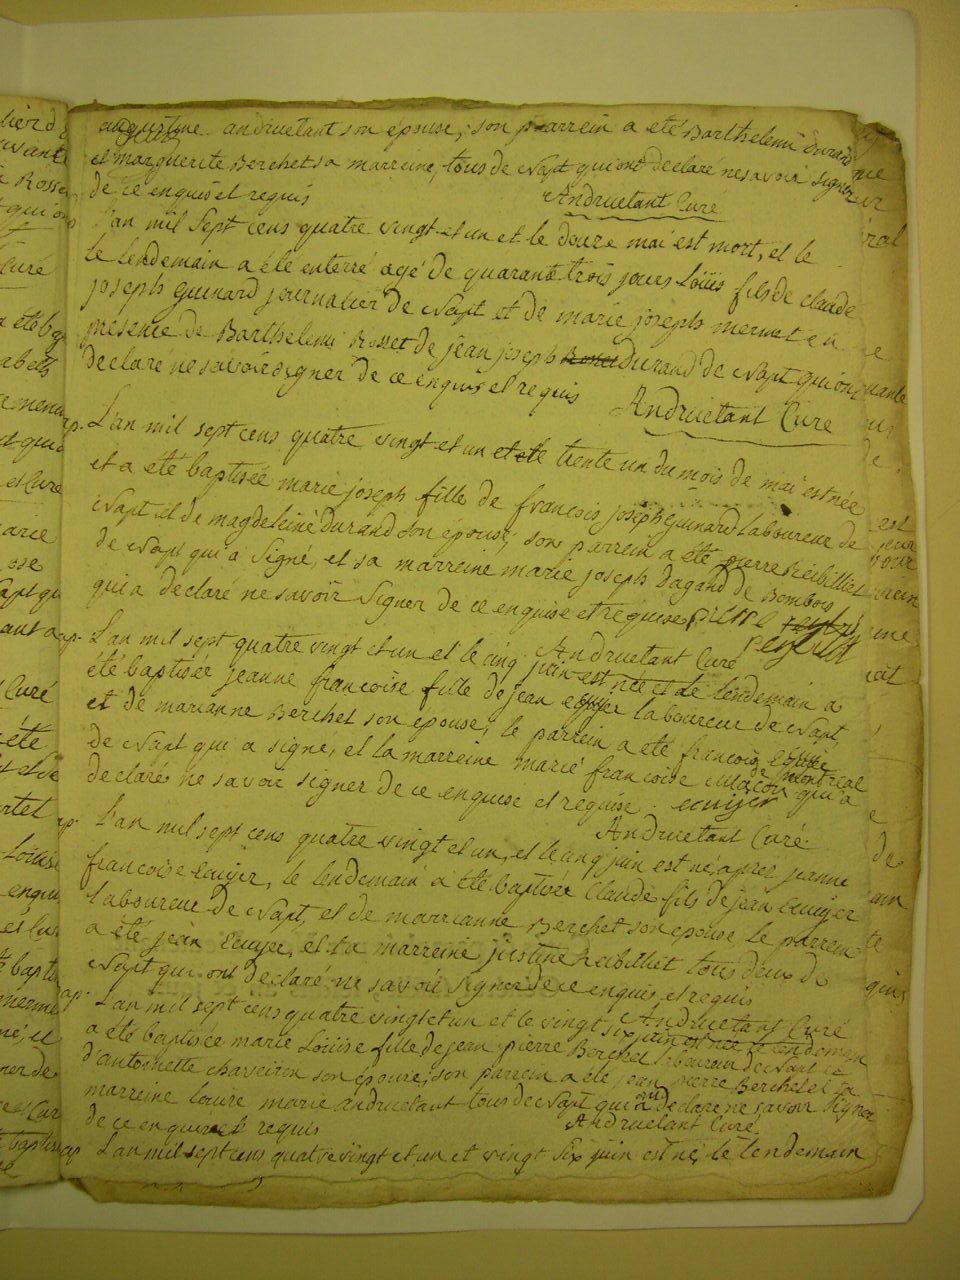 augustine andruetant son epouse, son parrein a eté Barthelemi Durand
et marguerite Berchet sa marreine, tous de Napt qui ont declaré ne savoir signer
de ce enquis et requis
Andruetant Curé
L'an mil sept cens quatre vingt et un et le douze mai est mort, et le
le lendemain a été enterré agé de quarante trois jours Loüis fils de claude
joseph guinard journalier de Napt et de marie joseph mermet en
presence de Barthelemi Rosset de jean joseph Durand de Napt qui ont
declaré ne savoir signer de ce enquis et requis
Andruetant Cure
ap. L'an mil sept cens quatre vingt et un et le trente un du mois de mai est née
et a été baptisée marie joseph fille de francois joseph guinard laboureur de
Napt et de magdeleine Durand son épouse, son parrein a été pierre Reibilliet
de Napt qui a signé, et sa marreine marie joseph Dagand de Bombois
qui a declaré ne savoir signer de ce enquise et requise pierre
Andruetant Curé
ap. L'an mil sept quatre vingt et un et le cinq juin est née et le lendemain a
été baptisée jeanne francoise fille de jean ecuyer laboureur de Napt
et de marianne Berchet son epouse, le parrein a été francois
de Napt qui a signé, et la marreine marie francoise Maçon de montreal qui a
declaré ne savoir signer de ce enquise et requise . ecuÿer
Andruetant Curé.
ap. L'an mil sept cens quatre vingt et un, et le cinq juin est né, aprés jeanne
francoise Ecuÿer, le lendemain a été baptisée Claude fils de jean Ecuÿer
laboureur de Napt, et de marrianne Berchet son epouse, le parrein
a été jean Ecuyer, et la marreine justine Reibilliet tous deux de
Napt qui ont declaré ne savoir signer de ce enquis et requis
Andruetant Curé
ap. L'an mil sept cens quatre vingt et un et le vingt six juin est née le lendemain
a été baptisée marie Loüise fille de jean pierre Berchet laboureur de Napt et
d'antoinette chaveiron son épouse, son parrein a été jean pierre Berchet et sa
marreine Louise marie andruetant tous de Napt qui ont declaré ne savoir signer
de ce enquis et requis
Andruetant Curé
ap L'an mil sept cens quatre vingt et un et vingt six juin est né, le lendemain